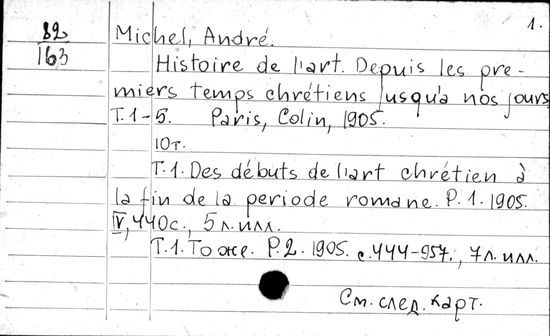 1.
82
163
Michel, André.
Histoire de l'art. Depuis les pre-
miers temps chrétiens jusqu'a nos jours
T.1-5. Paris, Colin, 1905.
10т.
T.1. Des débuts de l'art chrétien à
la fin de la periode romane. P.1. 1905.
IV, 440с., 5 л. илл.
T.1. То же. P.2. 1905. с.444-957., 7л. илл.
См. след. карт.